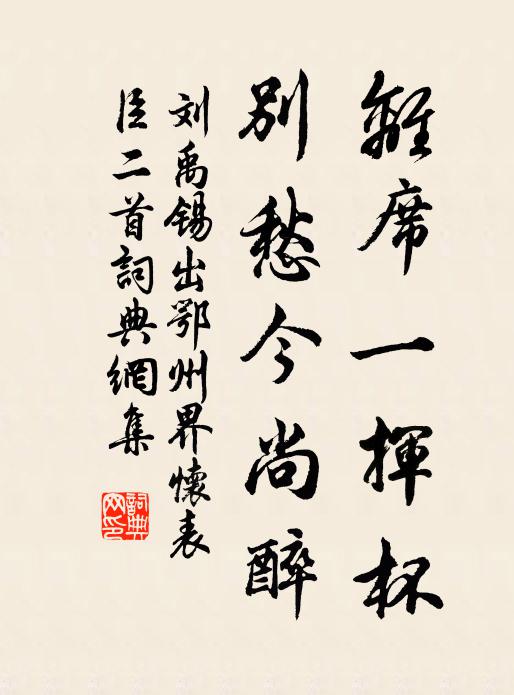 離席一揮杯
別愁今尚醉
刘禹锡出鄂州界懷表
臣二首詞典網集
詞典網印